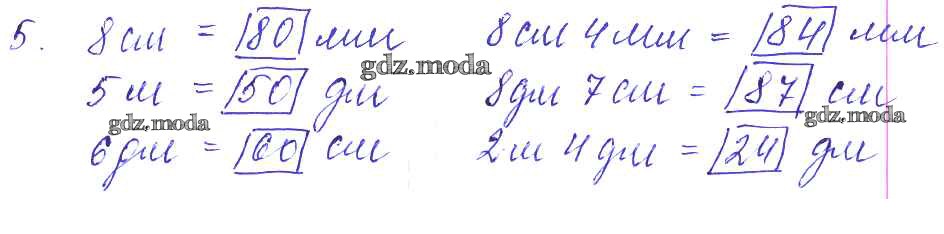 5. 8 см = 80 мм 8 см 4 мм = 84 мм
gdz.moda
5 м = 50 дм 8 дм 7 см = 87 см
gdz.moda gdz.moda
6 дм = 60 см 2 м 4 дм = 24 дм